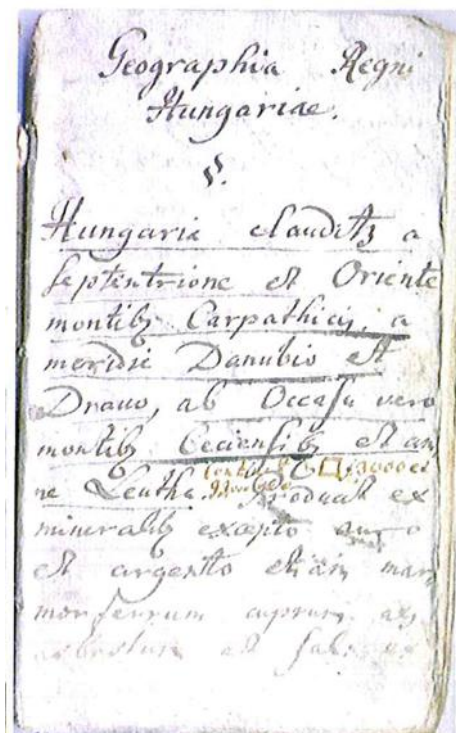 Geographia Regni
Hungariae.
§.
Hungaria clauditꝫ a
septentrione et Oriente
montibꝫ Carpathicis, a
meridie Danubio et
Dravo, ab Occasu vero
montibꝫ Ceciensibꝫ et am
ne Leutha. Producit ex
mineralibꝫ excepto auro
et argento etiam mar
mor ferrum cuprum
et